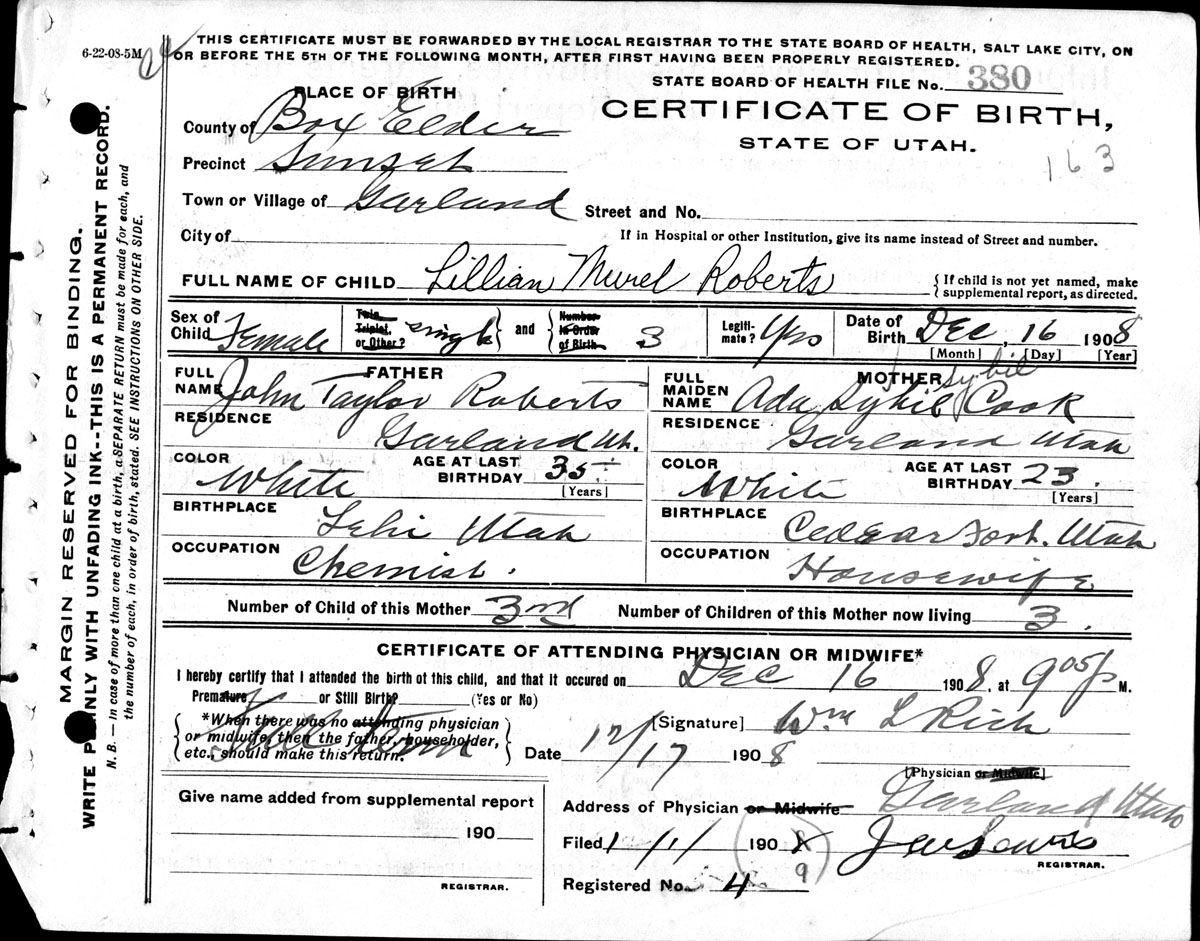 6-22-08-5M
THIS CERTIFICATE MUST BE FORWARDED BY THE LOCAL REGISTRAR TO THE STATE BOARD OF HEALTH, SALT LAKE CITY, ON
OR BEFORE THE 5TH OF THE FOLLOWING MONTH, AFTER FIRST HAVING BEEN PROPERLY REGISTERED.
STATE BOARD OF HEALTH FILE No. 380
PLACE OF BIRTH
CERTIFICATE OF BIRTH,
County of Box Elder
STATE OF UTAH.
163
Precinct Sunset
Town or Village of Garland Street and No.
City of If in Hospital or other Institution, give its name instead of Street and number.
FULL NAME OF CHILD Lillian Murel Roberts { If child is not yet named, make supplemental report, as directed.
Sex of Child Female Twin Triplet, or Other? single and Number in Order of Birth 3 Legiti-mate? Yes Date of Birth Dec, 16 1908
[Month] [Day] [Year]
FATHER MOTHER Sybil
FULL NAME John Taylor Roberts FULL MAIDEN NAME Ada Sybil Cook
RESIDENCE Garland Ut. RESIDENCE Garland Utah
COLOR White AGE AT LAST BIRTHDAY 35 [Years] COLOR White AGE AT LAST BIRTHDAY 23 [Years]
BIRTHPLACE Lehi Utah BIRTHPLACE Cedear Fort. Utah
OCCUPATION Chemist. OCCUPATION Housewife
Number of Child of this Mother 3rd Number of Children of this Mother now living 3.
CERTIFICATE OF ATTENDING PHYSICIAN OR MIDWIFE*
I hereby certify that I attended the birth of this child, and that it occured on Dec 16 1908, at 905 p M.
Premature or Still Birth? (Yes or No)
Full Term
{ *When there was no attending physician or midwife, then the father, householder, etc., should make this return. }
[Signature] Wm L Rich
Date 12/17 1908
[Physician or Midwife]
Give name added from supplemental report
190
REGISTRAR.
Address of Physician or Midwife Garland Utah
Filed 1/1/ 1908 9 J W Lewis
REGISTRAR.
Registered No. 4
MARGIN RESERVED FOR BINDING.
WRITE PLAINLY WITH UNFADING INK--THIS IS A PERMANENT RECORD.
N. B. — In case of more than one child at a birth, a SEPARATE RETURN must be made for each, and
the number of each, in order of birth, stated. SEE INSTRUCTIONS ON OTHER SIDE.